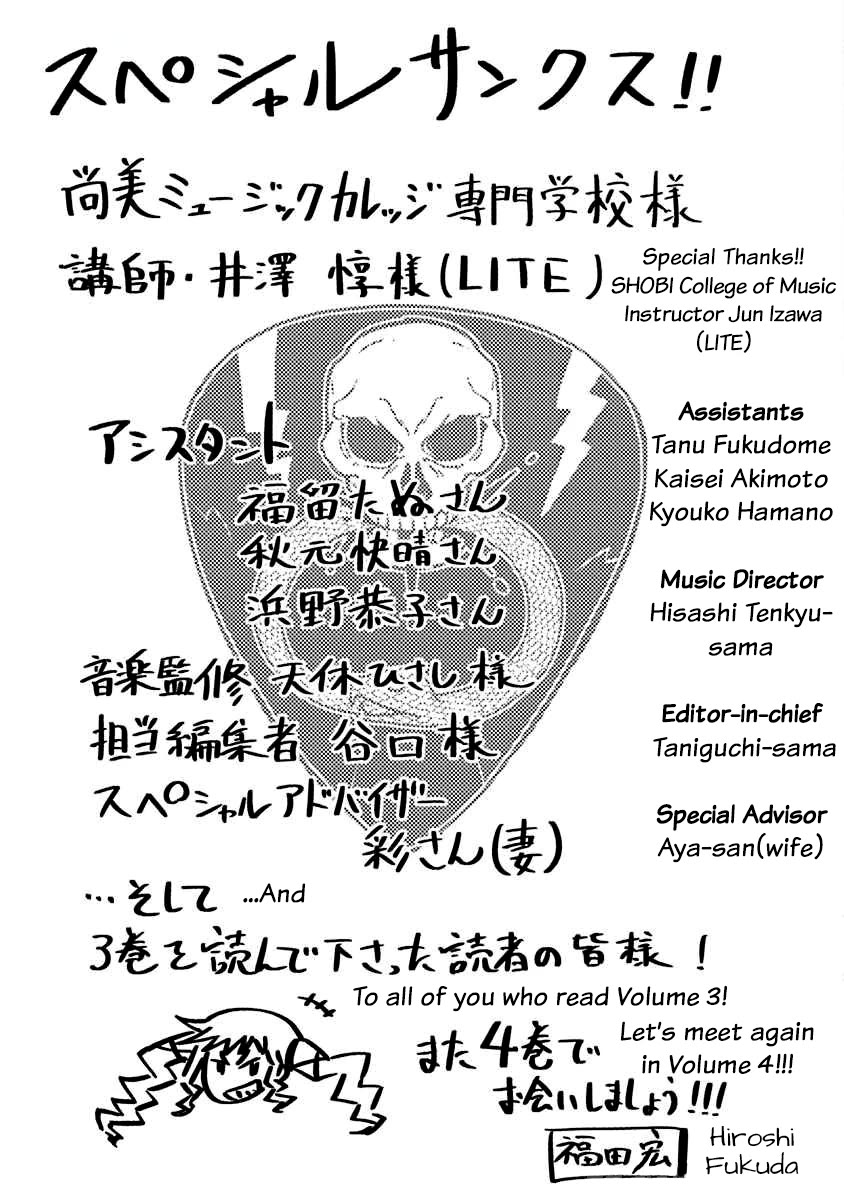 スペシャルサンクス!!
尚美ミュージックカレッジ専門学校様
講師・井澤 惇様(LITE)
Special Thanks!!
SHOBI College of Music
Instructor Jun Izawa
(LITE)
アシスタント
福留たぬさん
秋元快晴さん
浜野恭子さん
Assistants
Tanu Fukudome
Kaisei Akimoto
Kyouko Hamano
音楽監修 天休ひさし様
Music Director
Hisashi Tenkyu-
sama
担当編集者 谷口様
Editor-in-chief
Taniguchi-sama
スペシャルアドバイザー
彩さん(妻)
Special Advisor
Aya-san(wife)
…そして
...And
3巻を読んで下さった読者の皆様!
To all of you who read Volume 3!
また4巻で
お会いしましょう!!!
Let's meet again
in Volume 4!!!
福田宏
Hiroshi
Fukuda